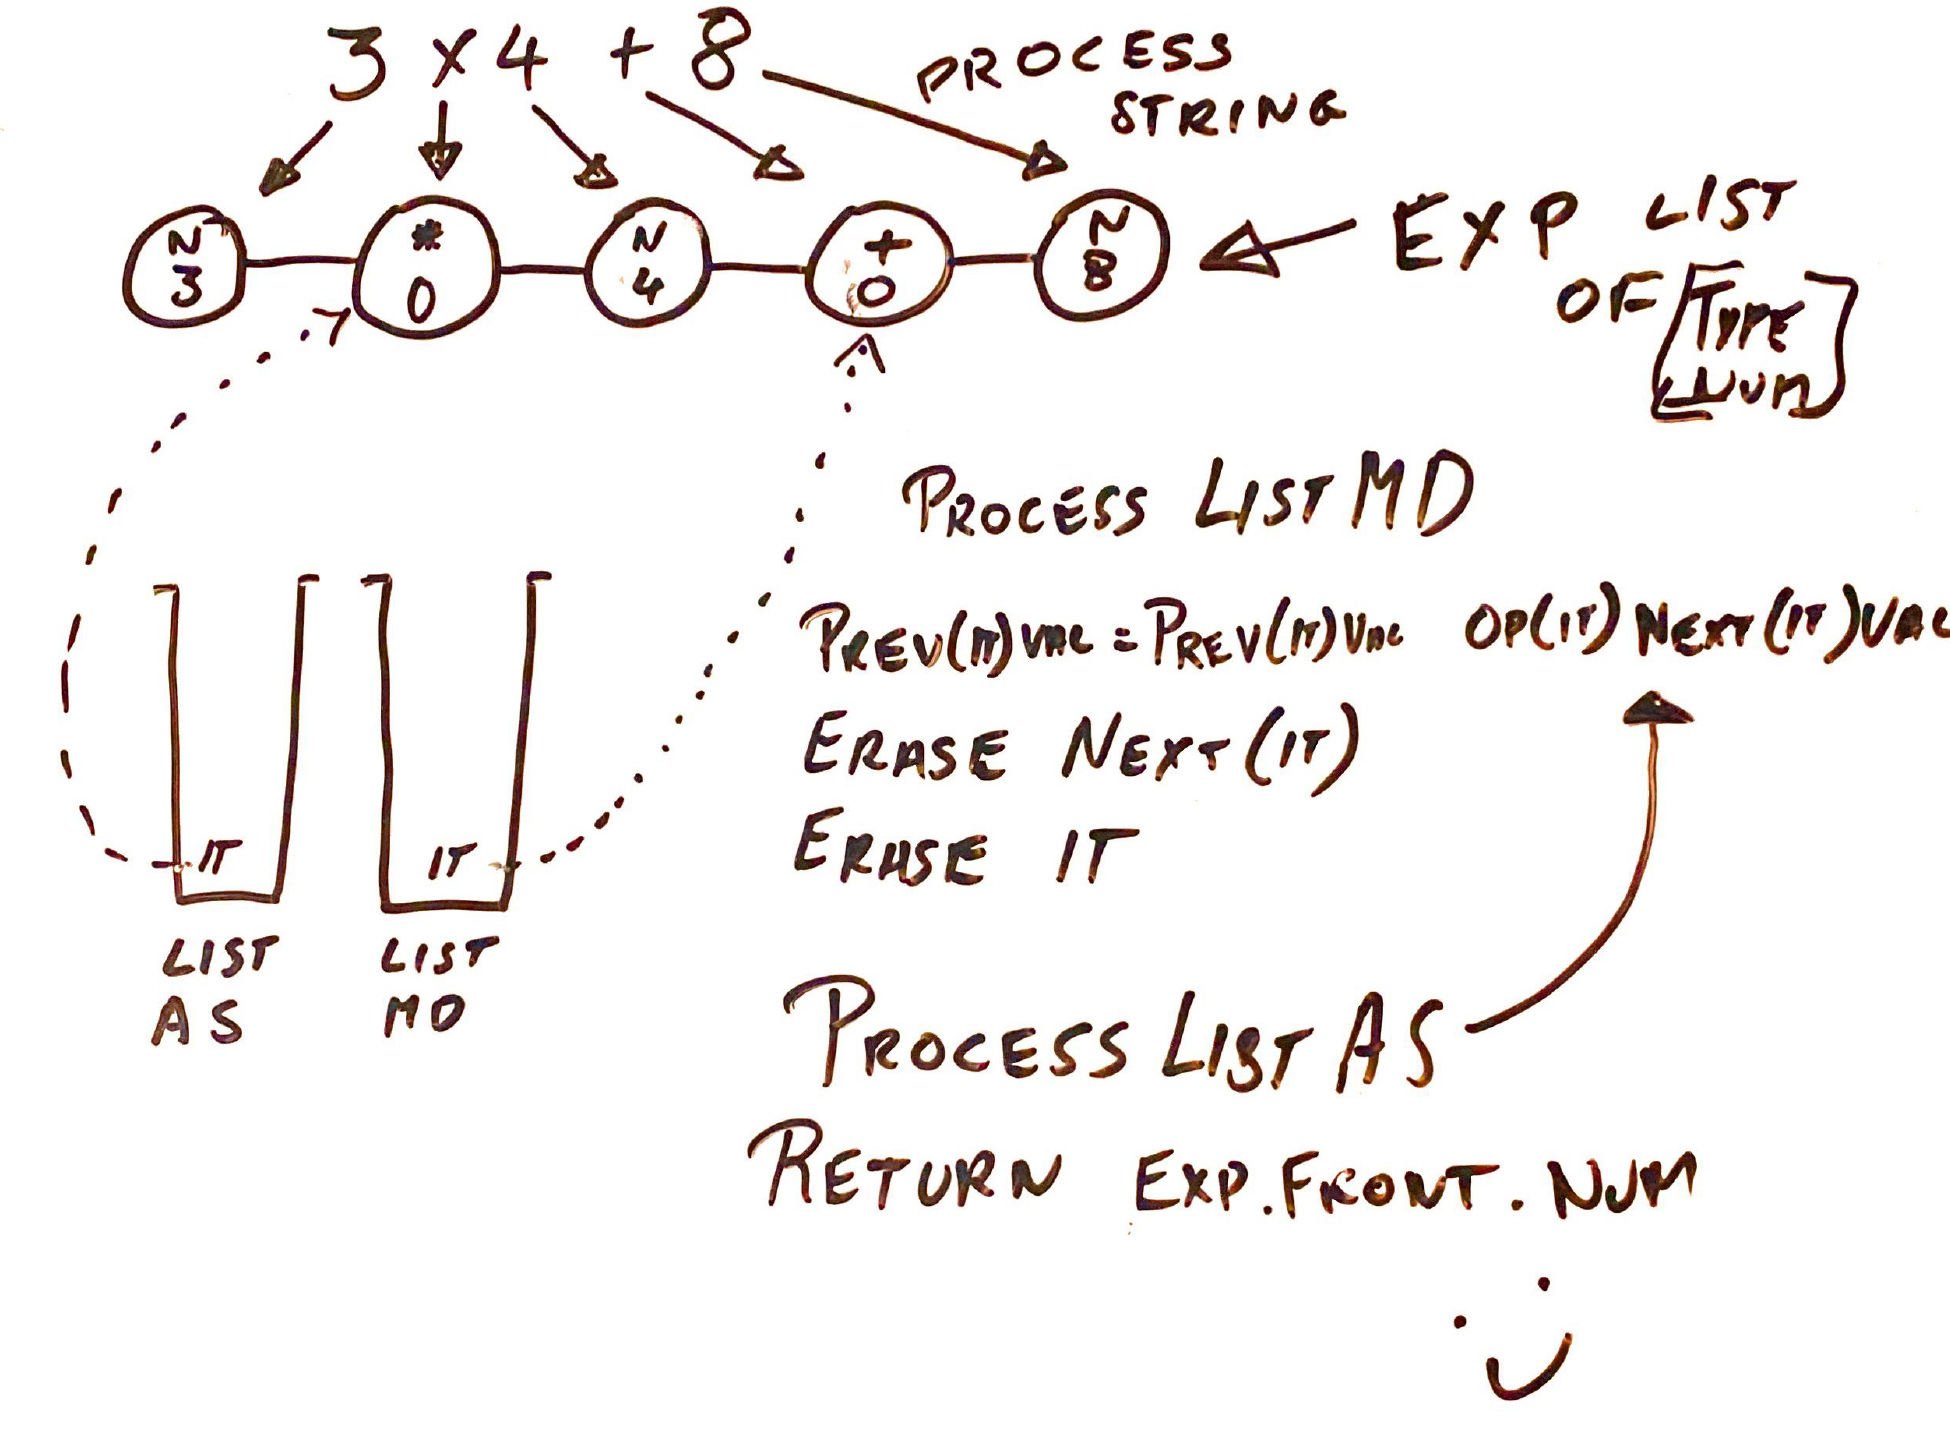 3 x 4 + 8
PROCESS
STRING
N
3
*
0
N
4
+
0
N
8
EXP LIST
OF [TYPE
NUM]
PROCESS LIST MD
PREV(IT)VAL = PREV(IT)VAL OP(IT) NEXT(IT)VAL
ERASE NEXT(IT)
ERASE IT
IT
IT
LIST
AS
LIST
MD
PROCESS LIST AS
RETURN EXP.FRONT.NUM